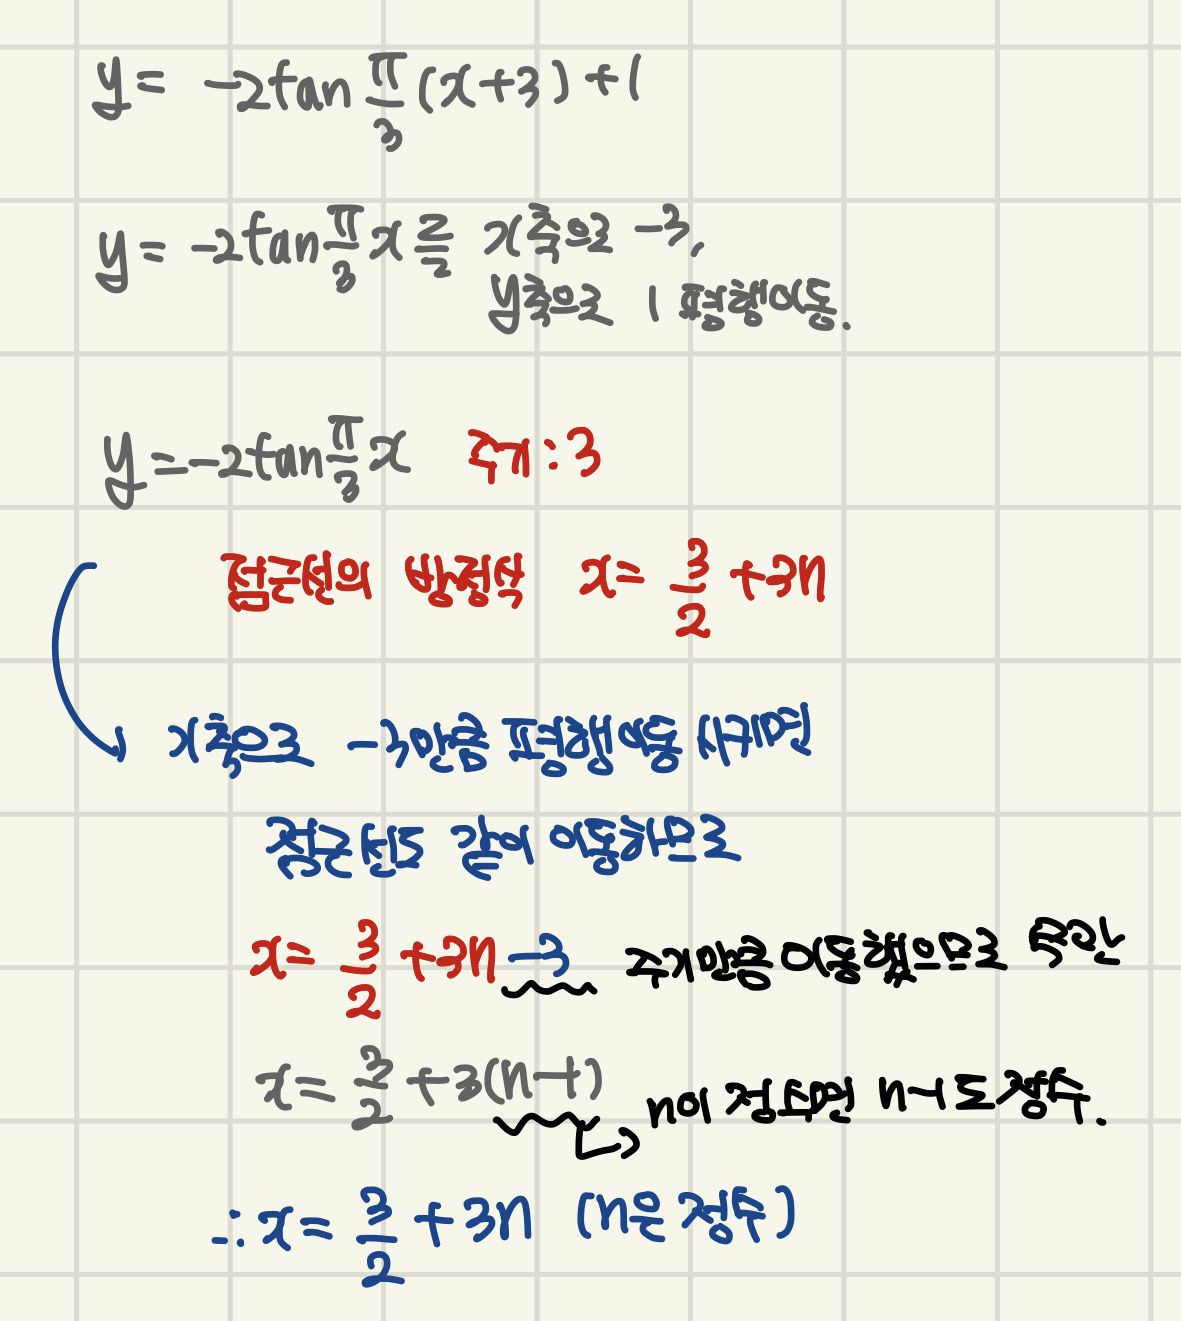 y = -2tan π/3 (x+3) + 1
y = -2tan π/3 x 를 x축으로 -3,
y축으로 1 평행이동.
y = -2tan π/3 x 주기 : 3
점근선의 방정식 x = 3/2 + 3n
x축으로 -3만큼 평행이동 시키면
점근선도 같이 이동하므로
x = 3/2 + 3n -3 주기만큼 이동했으므로
x = 3/2 + 3(n-1) n이 정수면 n-1도 정수.
∴ x = 3/2 + 3n (n은 정수)